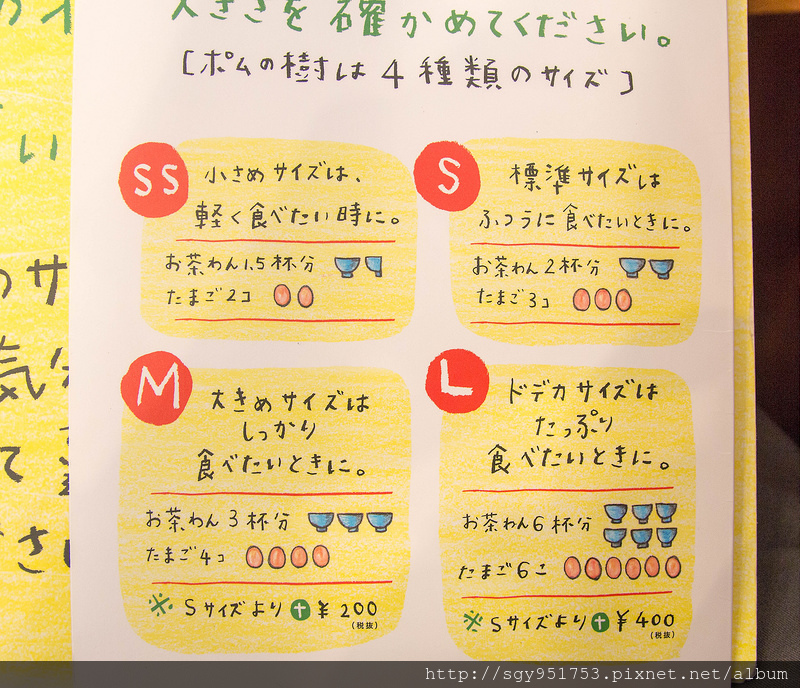 大きさを確かめてください。
[ポムの樹は4種類のサイズ]
SS
小さめサイズは、
軽く食べたい時に。
お茶わん1.5杯分
たまご2コ
S
標準サイズは
ふつうに食べたいときに。
お茶わん2杯分
たまご3コ
M
大きめサイズは
しっかり
食べたいときに。
お茶わん3杯分
たまご4コ
※Sサイズより+¥200
(税抜)
L
ドデカサイズは
たっぷり
食べたいときに。
お茶わん6杯分
たまご6こ
※Sサイズより+¥400
(税抜)
http://sgy951753.pixnet.net/album